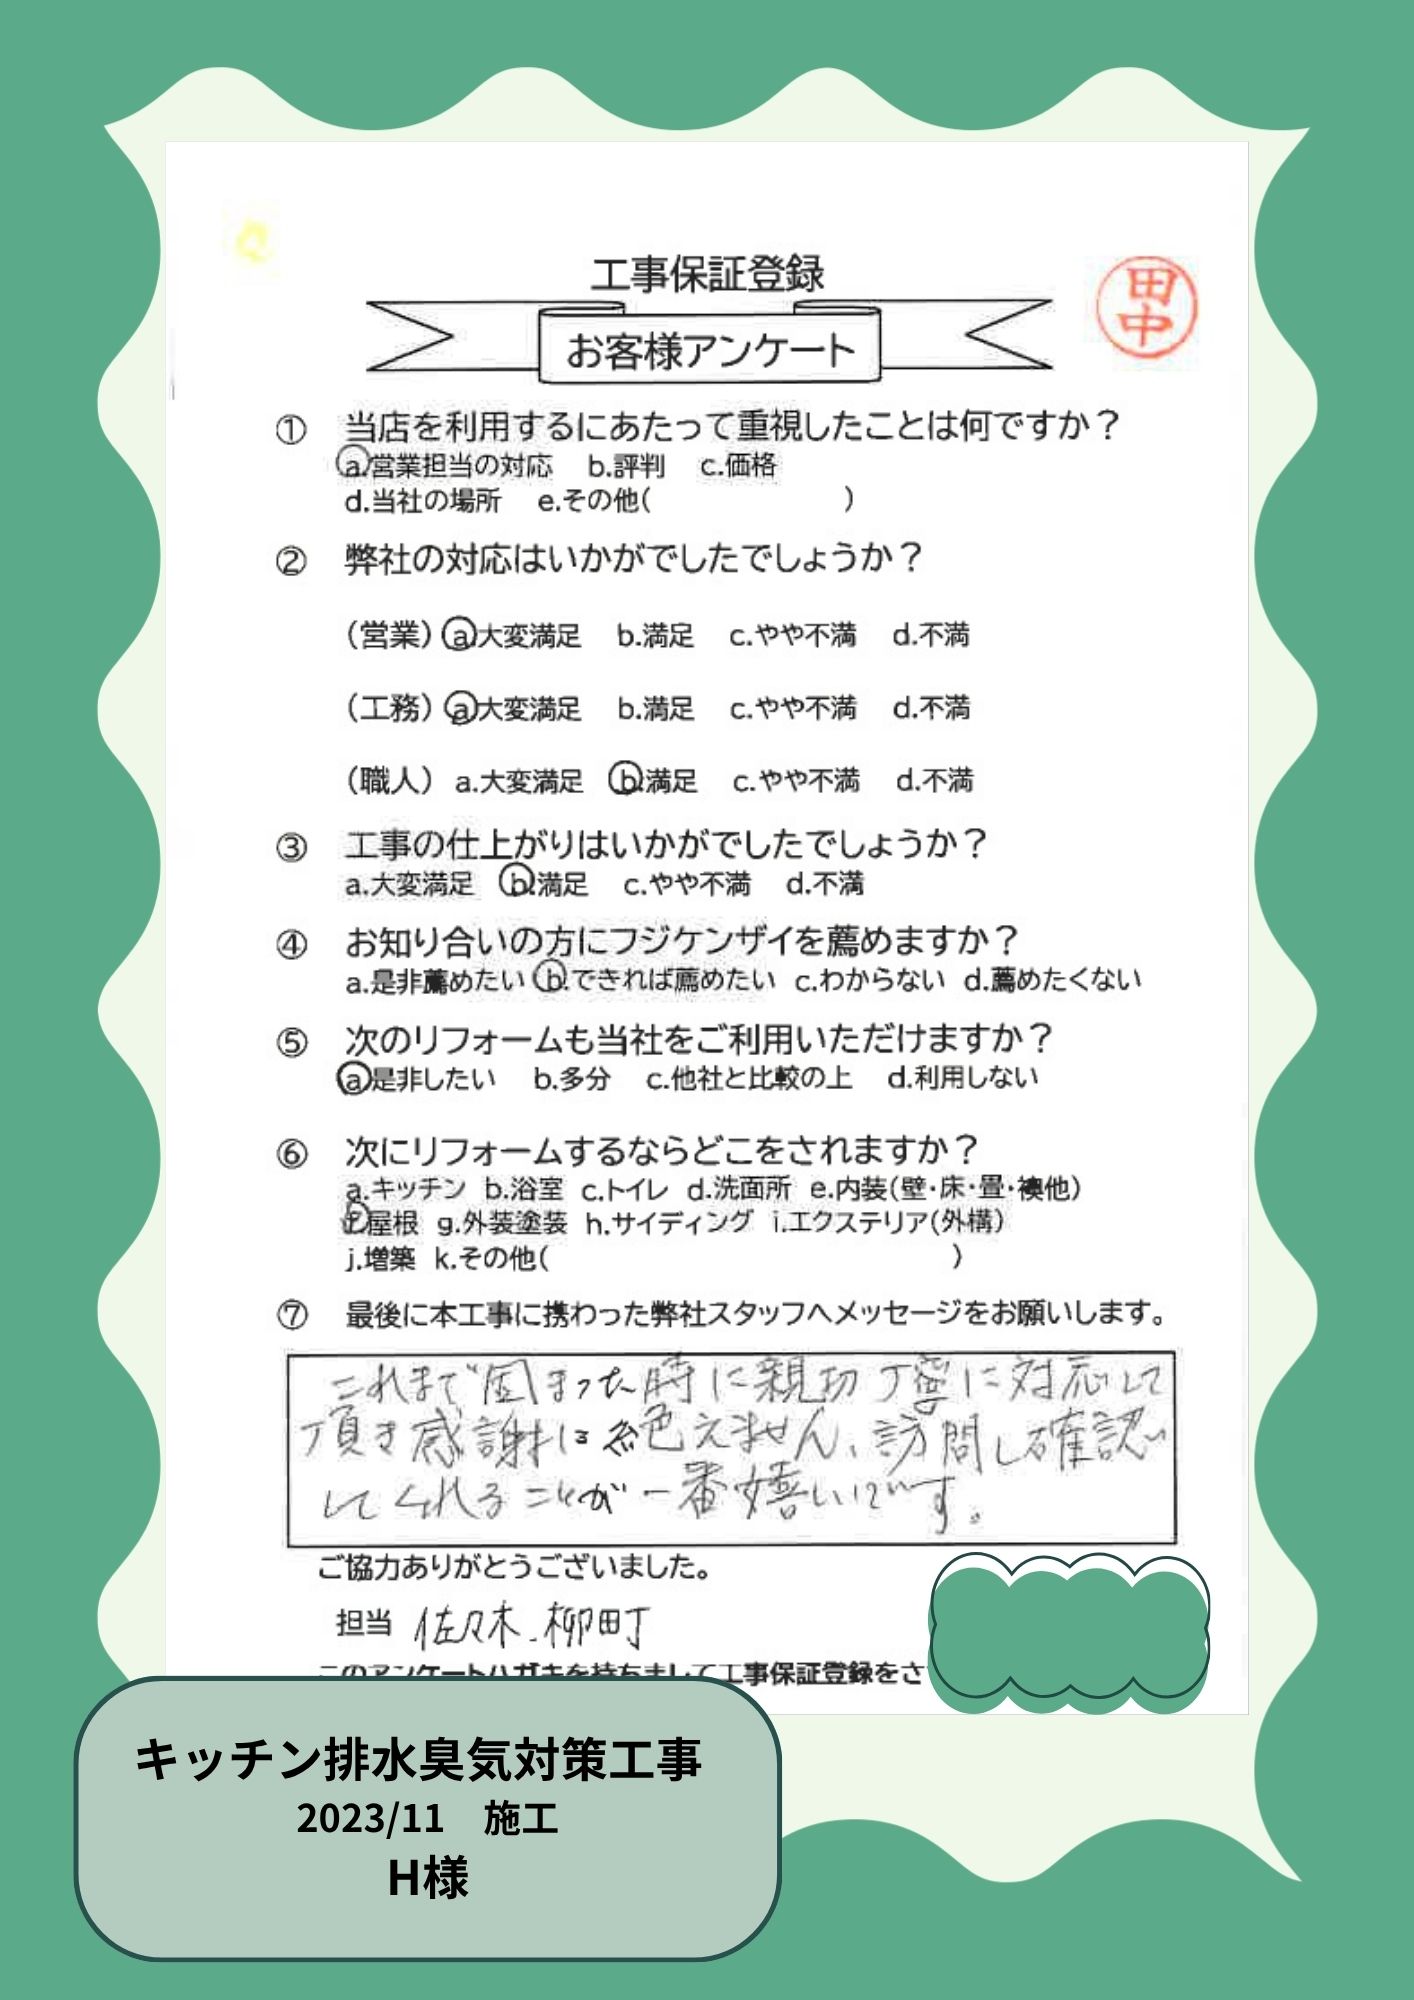 工事保証登録
田中
お客様アンケート
① 当店を利用するにあたって重視したことは何ですか？
a.営業担当の対応 b.評判 c.価格
d.当社の場所 e.その他( )
② 弊社の対応はいかがでしたでしょうか？
（営業） a.大変満足 b.満足 c.やや不満 d.不満
（工務） a.大変満足 b.満足 c.やや不満 d.不満
（職人） a.大変満足 b.満足 c.やや不満 d.不満
③ 工事の仕上がりはいかがでしたでしょうか？
a.大変満足 b.満足 c.やや不満 d.不満
④ お知り合いの方にフジケンザイを薦めますか？
a.是非薦めたい b.できれば薦めたい c.わからない d.薦めたくない
⑤ 次のリフォームも当社をご利用いただけますか？
a.是非したい b.多分 c.他社と比較の上 d.利用しない
⑥ 次にリフォームするならどこをされますか？
a.キッチン b.浴室 c.トイレ d.洗面所 e.内装(壁・床・畳・襖他)
f.屋根 g.外装塗装 h.サイディング i.エクステリア(外構)
j.増築 k.その他( )
⑦ 最後に本工事に携わった弊社スタッフへメッセージをお願いします。
これまで困まった時に親切丁寧に対応して
頂き感謝に絶えません、訪問し確認
してくれることが一番嬉しいです。
ご協力ありがとうございました。
担当 佐々木、柳田丁
このアンケートハガキを持ちまして工事保証登録をさ
キッチン排水臭気対策工事
2023/11 施工
H様